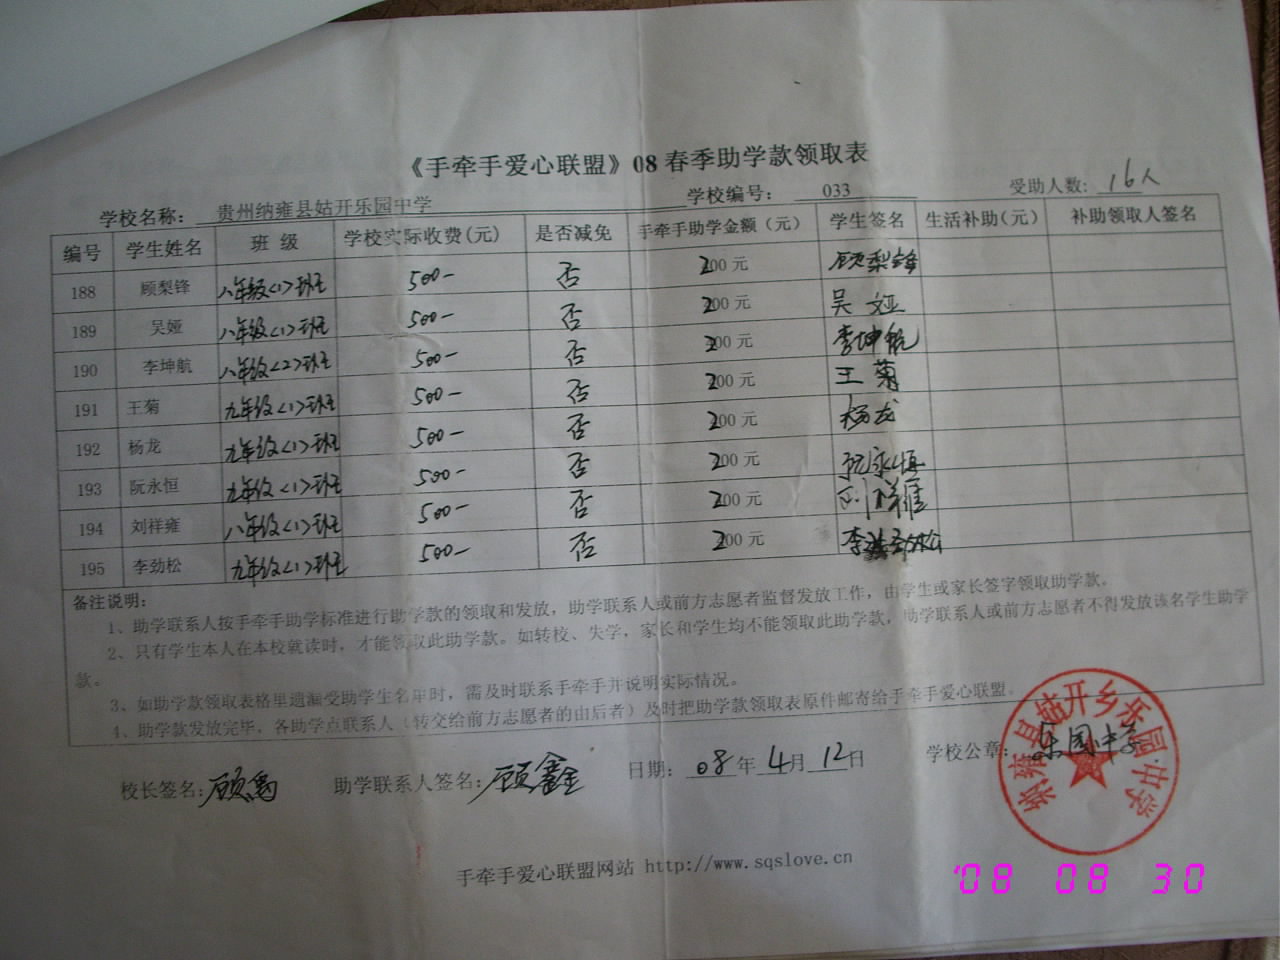 《手牵手爱心联盟》08 春季助学款领取表
学校名称： 贵州纳雍县姑开乐园中学 学校编号： 033 受助人数: 16人
编号 学生姓名 班 级 学校实际收费(元) 是否减免 手牵手助学金额（元） 学生签名 生活补助(元) 补助领取人签名
188 顾梨锋 八年级<1>班 500- 否 200元 顾梨锋
189 吴娅 八年级<1>班 500- 否 200元 吴娅
190 李坤航 八年级<2>班 500- 否 200元 李坤航
191 王菊 九年级<1>班 500- 否 200元 王菊
192 杨龙 九年级<1>班 500- 否 200元 杨龙
193 阮永恒 九年级<1>班 500- 否 200元 阮永恒
194 刘祥雍 八年级<1>班 500- 否 200元 刘祥雍
195 李劲松 九年级<1>班 500- 否 200元 李劲松
备注说明：
1、助学联系人按手牵手助学标准进行助学款的领取和发放，助学联系人或前方志愿者监督发放工作，由学生或家长签字领取助学款。
2、只有学生本人在本校就读时，才能领取此助学款。如转校、失学，家长和学生均不能领取此助学款，助学联系人或前方志愿者不得发放该名学生助学
款。
3、如助学款领取表格里遗漏受助学生名单时，需及时联系手牵手并说明实际情况。
4、助学款发放完毕，各助学点联系人（转交给前方志愿者的由后者）及时把助学款领取表原件邮寄给手牵手爱心联盟。
校长签名: 顾 助学联系人签名: 顾鑫 日期: 08 年 4月 12日 学校公章: 乐园中学
纳雍县姑开乡乐园中学
手牵手爱心联盟网站 http://www.sqslove.cn
'08 08 30